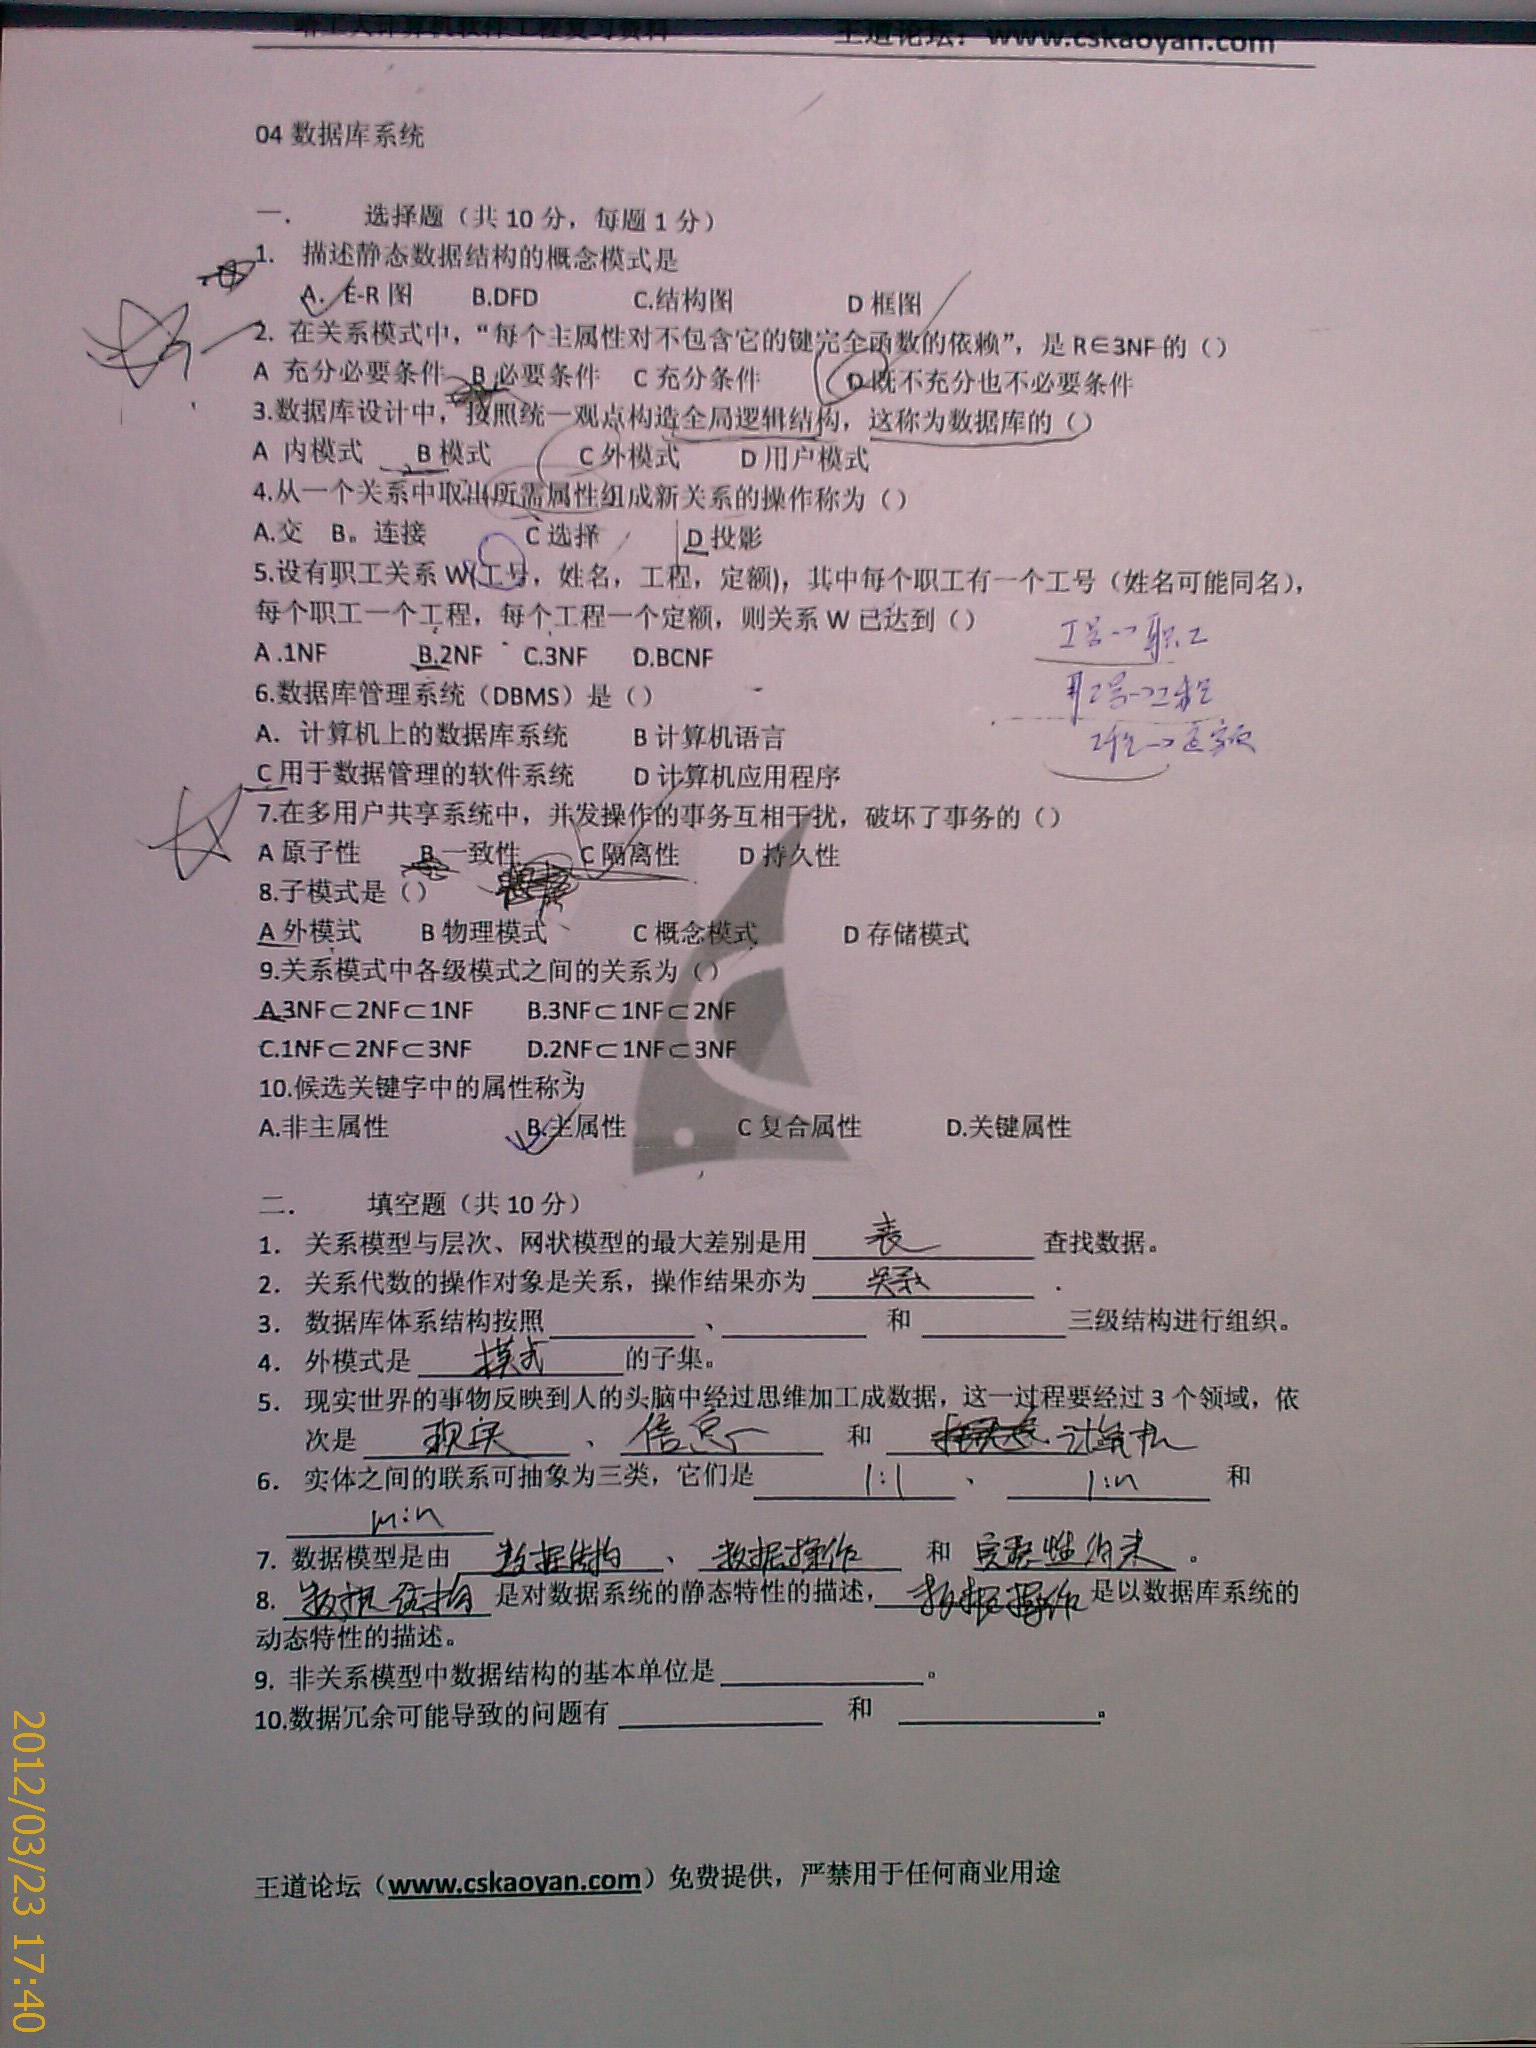 哈工大计算机软件工程复习资料 王道论坛：www.cskaoyan.com
04 数据库系统
一． 选择题（共 10 分，每题 1 分）
1. 描述静态数据结构的概念模式是
A．E-R 图 B.DFD C.结构图 D 框图
2. 在关系模式中，“每个主属性对不包含它的键完全函数的依赖”，是 R∈3NF 的（）
A 充分必要条件 B 必要条件 C 充分条件 D 既不充分也不必要条件
3.数据库设计中，按照统一观点构造全局逻辑结构，这称为数据库的（）
A 内模式 B 模式 C 外模式 D 用户模式
4.从一个关系中取出所需属性组成新关系的操作称为（）
A.交 B。连接 C 选择 D 投影
5.设有职工关系 W(工号，姓名，工程，定额)，其中每个职工有一个工号（姓名可能同名），
每个职工一个工程，每个工程一个定额，则关系 W 已达到（）
工号→职工
A .1NF B.2NF C.3NF D.BCNF
职工号→工程
6.数据库管理系统（DBMS）是（）
A．计算机上的数据库系统 B 计算机语言
工程→定额
C 用于数据管理的软件系统 D 计算机应用程序
7.在多用户共享系统中，并发操作的事务互相干扰，破坏了事务的（）
A 原子性 B 一致性 C 隔离性 D 持久性
8.子模式是（）
A 外模式 B 物理模式 C 概念模式 D 存储模式
9.关系模式中各级模式之间的关系为（）
A.3NF⊂2NF⊂1NF B.3NF⊂1NF⊂2NF
C.1NF⊂2NF⊂3NF D.2NF⊂1NF⊂3NF
10.候选关键字中的属性称为
A.非主属性 B.主属性 C 复合属性 D.关键属性
二． 填空题（共 10 分）
1. 关系模型与层次、网状模型的最大差别是用 表 查找数据。
2. 关系代数的操作对象是关系，操作结果亦为 关系 .
3. 数据库体系结构按照 、 和 三级结构进行组织。
4. 外模式是 模式 的子集。
5. 现实世界的事物反映到人的头脑中经过思维加工成数据，这一过程要经过 3 个领域，依
次是 现实 、 信息 和 计算机
6. 实体之间的联系可抽象为三类，它们是 1:1 、 1:n 和
m:n
7. 数据模型是由 数据结构 、 数据操作 和 完整性约束 。
8. 数据结构 是对数据系统的静态特性的描述， 数据操作 是以数据库系统的
动态特性的描述。
9. 非关系模型中数据结构的基本单位是 。
10.数据冗余可能导致的问题有 和 。
王道论坛（www.cskaoyan.com）免费提供，严禁用于任何商业用途
2012/03/23 17:40